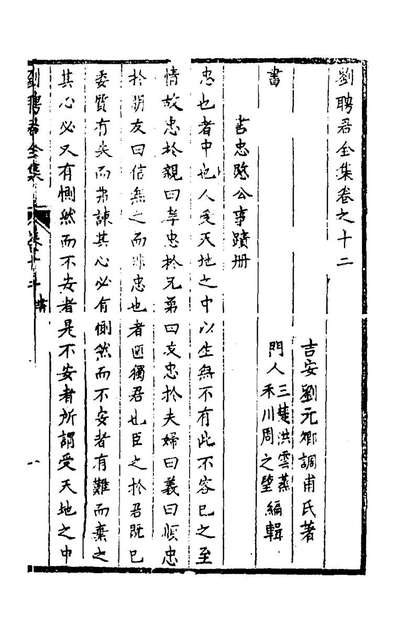 劉聘君全集卷之十二
吉安劉元卿調甫氏著
門人三楚洪雲蒸
禾川周之望編輯
書
書忠愍公事蹟册
忠也者中也人受天地之中以生無不有此不容已之至
情故忠於親曰孝忠於兄弟曰友忠於夫婦曰義曰順忠
於朋友曰信無之而非忠也者匪獨君也臣之於君既已
委質有矣而弗諫其心必有惻然而不安者有難而棄之
其心必又有惻然而不安者是不安者所謂受天地之中
劉聘君全集
卷十二
書
一